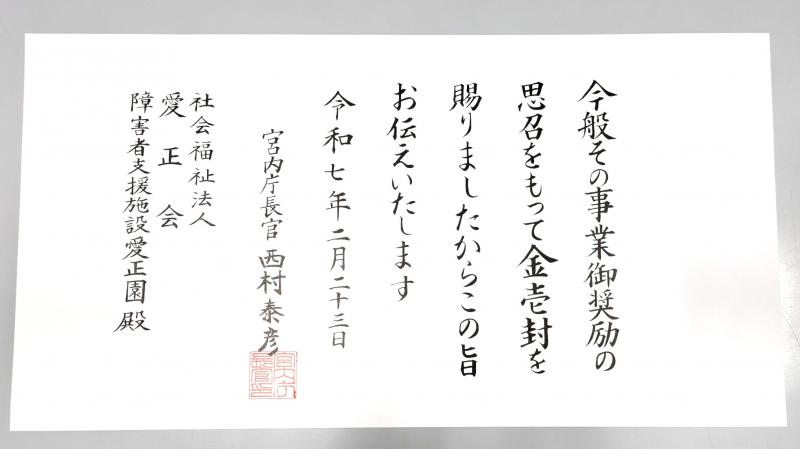 今般その事業御奨励の
思召をもって金壱封を
賜りましたからこの旨
お伝えいたします
令和七年二月二十三日
宮内庁長官 西村泰彦
宮内庁長官之印
社会福祉法人
愛正会
障害者支援施設愛正園 殿